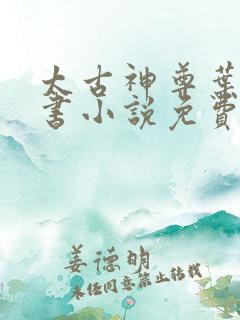 太古神尊叶
书小说免费
姜德明
未经同意禁止转载